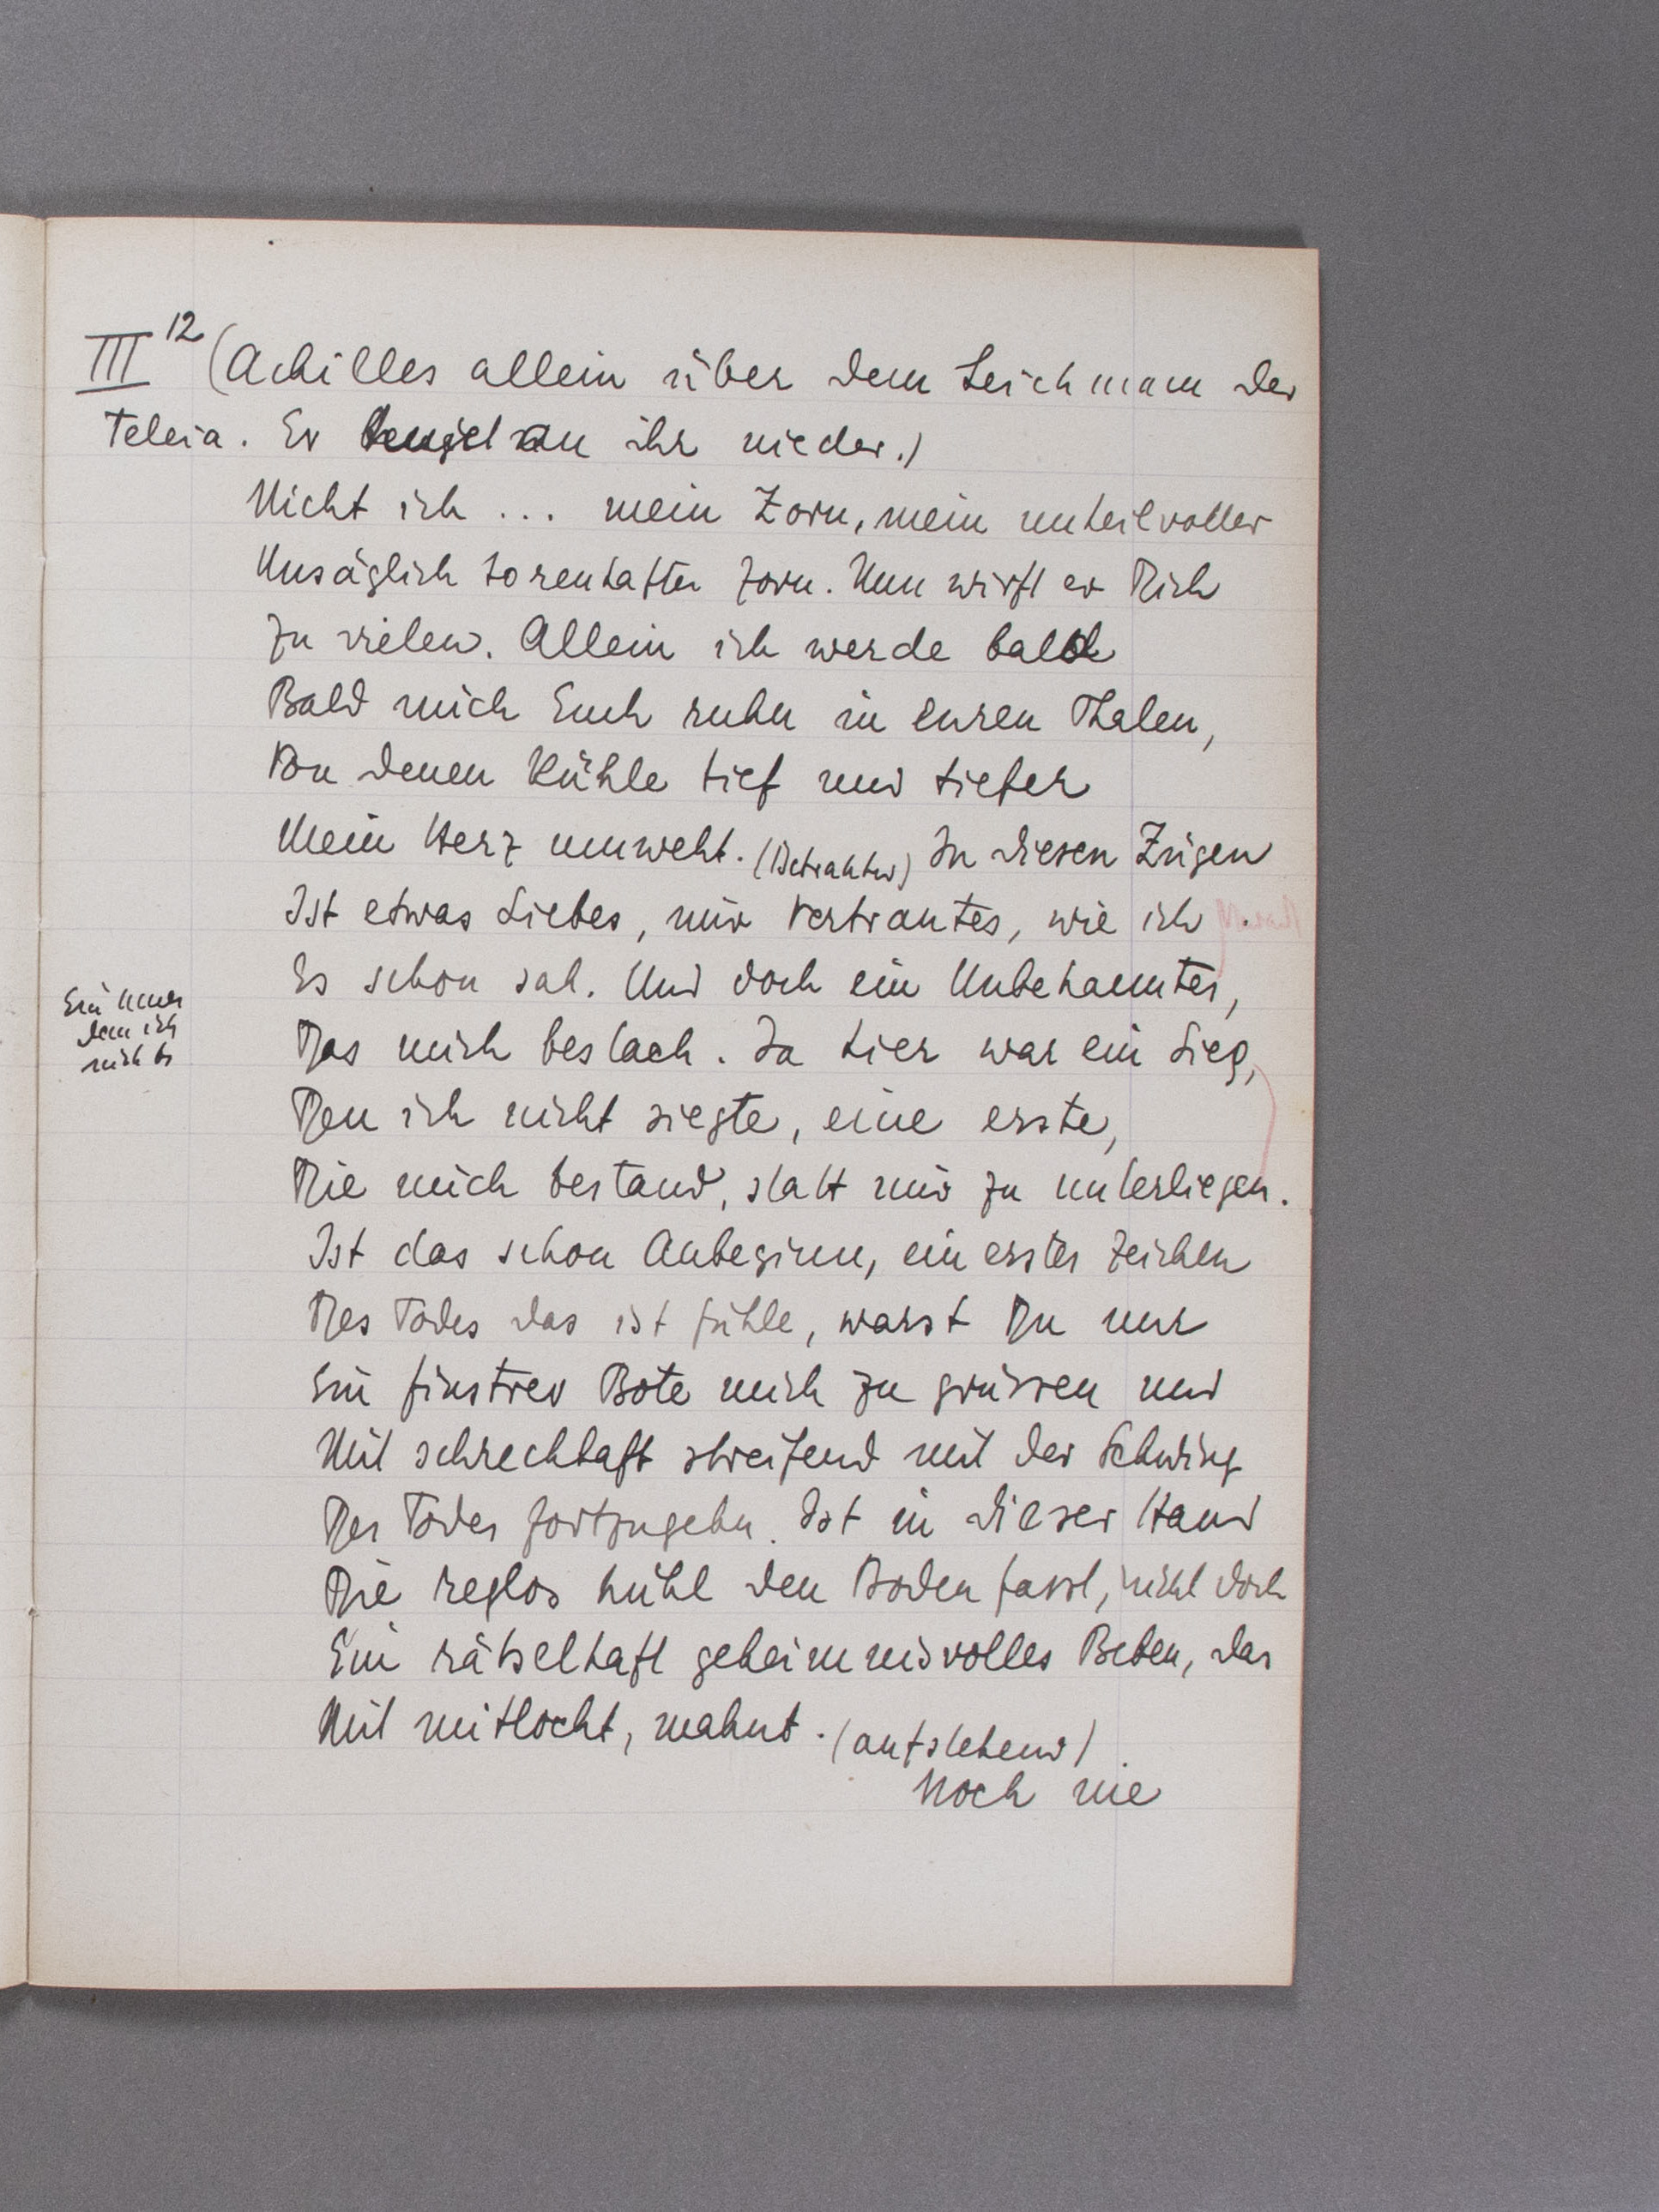 III 12 (Achilles allein über dem Leichnam der
Teleia. Er beugt an ihr nieder.)
Nicht ich ... mein Zorn, mein unheilvoller
Unsäglich torenhafter Zorn. Nun wirft er Dich
Zu vielen. Allein ich werde bald
Bald mich Euch ruhn in euren Thalen,
Von denen Kühle tief und tiefer
Mein Herz umweht. (Betrachtend) In diesen Zügen
Ist etwas Liebes, mir Vertrautes, wie ich
Es schon sah. Und doch ein Unbekanntes,
Ein
dem ich
nichts
Das mich bestach. Ja hier war ein Sieg,
Den ich nicht siegte, eine erste,
Die mich bestand, statt mir zu unterliegen.
Ist das schon Anbeginn, ein erstes Zeichen
Des Todes das ist fühle, warst Du nur
Ein finstrer Bote mich zu grüssen und
Mit schreckhaft streifend mit der Schwing
Des Todes fortzugehn. Ist in dieser Hand
Die reglos kühl den Boden fasst, nicht doch
Ein rätselhaft geheimnisvolles Beben, das
Mit mitlockt, mahnt. (aufstehend)
Noch nie